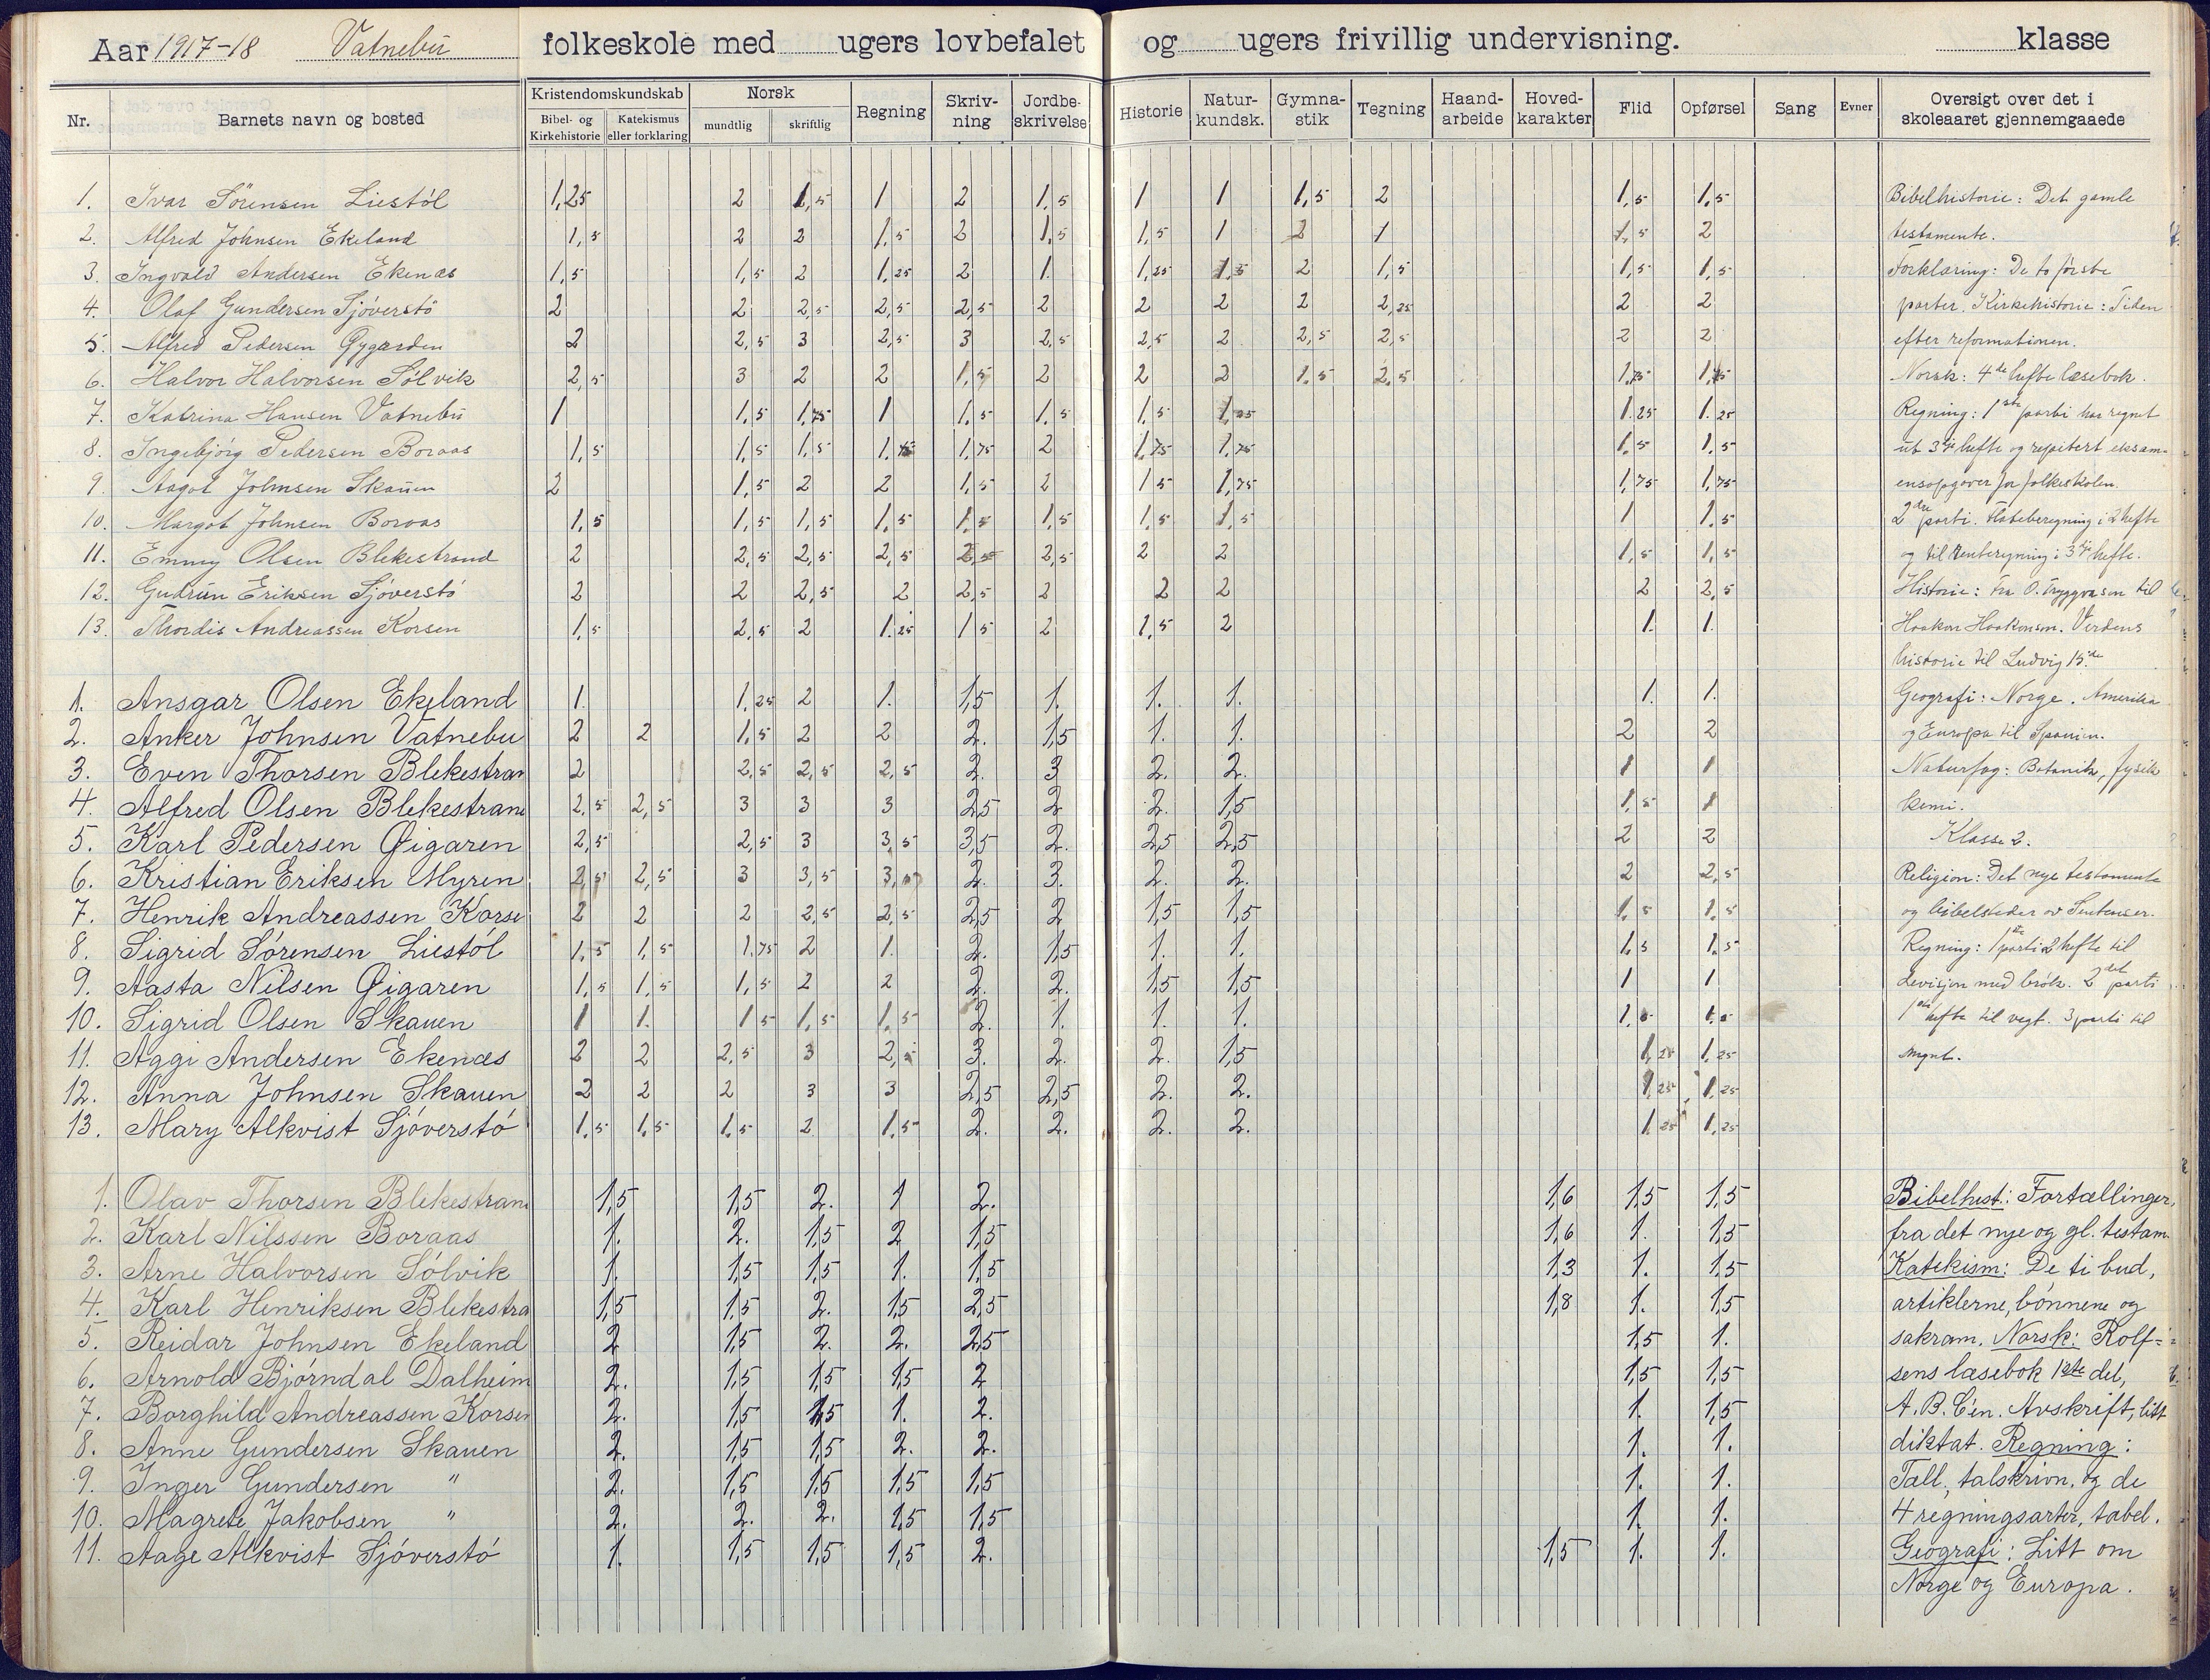 Aar 1917-18 Vatnebu folkeskole med ugers lovbefalet og ugers frivillig undervisning. klasse
Nr. Barnets navn og bosted Kristendomskundskab Bibel- og Kirkehistorie Katekismus eller forklaring Norsk mundtlig skriftlig Regning Skriv-ning Jordbe-skrivelse Historie Natur-kundsk. Gymna-stik Tegning Haand-arbeide Hoved-karakter Flid Opførsel Sang Evner Oversigt over det i skoleaaret gjennemgaaede
1. Ivar Sörensen Liestól 1,25 2 1,5 1 2 1,5 1 1 1,5 2 1,5 1,5 Bibelhistorie: Det gamle
2. Alfred Johnsen Ekeland 1,5 2 2 1,5 2 1,5 1,5 1 2 1 1,5 2 testamente.
3. Ingvald Andersen Ekenæs 1,5 1,5 2 1,25 2 1. 1,25 1,5 2 1,5 1,5 1,5 Forklaring: De to første
4. Olaf Gundersen Sjóverstó 2 2 2,5 2,5 2,5 2 2 2 2 2,25 2 2 parter. Kirkehistorie: Tiden
5. Alfred Pedersen Øygarden 2 2,5 3 2,5 3 2,5 2,5 2 2,5 2,5 2 2 efter reformationen.
6. Halvor Halvorsen Sólvik 2,5 3 2 2 1,5 2 2 2 1,5 2,5 1,75 1,75 Norsk: 4de hefte læsebok.
7. Katrina Hansen Vatnebu 1 1,5 1,75 1 1,5 1,5 1,5 1,25 1.25 1.25 Regning: 1ste parti har regnet
8. Ingebjórg Pedersen Boraas 1,5 1,5 1,5 1.75 1,75 2 1,75 1,75 1,5 1,5 ut 3dje hefte og repetert eksam-
9. Aagot Johnsen Skauen 2 1,5 2 2 1,5 2 1 5 1,75 1,75 1,75 ensopgaver for folkeskolen.
10. Margot Johnsen Boraas 1,5 1,5 1,5 1,5 1,5 1,5 1,5 1,5 1 1,5 2dre parti. Flateberegning i 2 hefte
11. Emmy Olsen Blekestrand 2 2,5 2,5 2,5 2,5 2,5 2 2 1,5 1,5 og til renteregning i 3dje hefte.
12. Gudrun Eriksen Sjóverstó 2 2 2,5 2 2,5 2 2 2 2 2,5 Historie: Fra O. Tryggvason til
13. Thordis Andreassen Korsen 1,5 2,5 2 1.25 1 5 2 1,5 2 1. 1. Haakon Haakonsøn. Verdens
historie til Ludvig 15.de
1. Ansgar Olsen Ekeland 1. 1,25 2 1. 1,5 1. 1. 1. 1. 1. Geografi: Norge. Amerika
2. Anker Johnsen Vatnebu 2 2 1,5 2 2 2. 1,5 1. 1. 2 2 og Europa til Spanien.
3. Even Thorsen Blekestran 2 2,5 2,5 2,5 2. 3 2. 2. 1 1 Naturfag: Botanik, fysik
4. Alfred Olsen Blekestrand 2,5 2,5 3 3 3 2,5 2 2. 1,5 1,5 1 kemi.
5. Karl Pedersen Øigaren 2,5 2,5 3 3,5 3,5 2. 2,5 2,5 2 2 Klasse 2.
6. Kristian Eriksen Myren 2,5 2,5 3 3,5 3,5 2. 3. 2. 2. 2 2,5 Religion: Det nye testamente
7. Henrik Andreassen Korse 2 2 2 2,5 2,5 2,5 2 1,5 1,5 1,5 1,5 og bibelsteder
8. Sigrid Sórensen Liestól 1,5 1,5 1,75 2 1. 2. 1,5 1. 1. 1,5 1,5 Regning: 1ste parti 2 hefte til
9. Aasta Nilsen Øigaren 1,5 1,5 1,5 2 2 2. 2. 1,5 1,5 1 1 devisjon med brók. 2det parti
10. Sigrid Olsen Skauen 1 1. 1 5 1,5 1,5 2. 1. 1. 1. 1,5 1,5 1ste hefte til vegt. 3 parti til
11. Aggi Andersen Ekenæs 2 2 2,5 3 2,5 3. 2. 2. 1,5 1,25 1,25 mynt.
12. Anna Johnsen Skauen 2 2 2 3 3 2,5 2,5 2. 2. 1,25 1,25
13. Mary Alkvist Sjóverstó 1,5 1,5 1,5 2 1,5 2. 2. 2. 2. 1,25 1,25
1. Olav Thorsen Blekestrand 1,5 1,5 2. 1 2. 1,6 1,5 1,5 Bibelhist: Fortællinger
2. Karl Nilssen Boraas 1. 2. 1,5 2 1,5 1,6 1. 1,5 fra det nye og gl. testam.
3. Arne Halvorsen Sólvik 1. 1,5 1,5 1. 1,5 1,3 1. 1,5 Katekism: De ti bud,
4. Karl Henriksen Blekestra 1,5 1,5 2. 1,5 2,5 1,8 1. 1,5 artiklerne, bónnene og
5. Reidar Johnsen Ekeland 2 1,5 2. 2. 2,5 1,5 1. sakram. Norsk: Rolf-
6. Arnold Bjórndal Dalheim 2. 1,5 1,5 1,5 2 1,5 1,5 sens læsebok 1ste del,
7. Borghild Andreassen Korsen 2. 1,5 1,5 1. 2. 1. 1,5 A.B.C'en. Avskrift, litt
8. Anne Gundersen Skauen 2. 1,5 1,5 2. 2. 1. 1. diktat. Regning:
9. Inger Gundersen " 2. 1,5 1,5 1,5 1,5 1. 1. Tall, talskrivn. og de
10. Magrete Jakobsen " 2. 2. 2. 1,5 1,5 1. 1. 4 regningsarter, tabel.
11. Aage Alkvist Sjóverstó 1. 1,5 1,5 1,5 2. 1,5 1. 1. Geografi: Litt om
Norge og Europa.